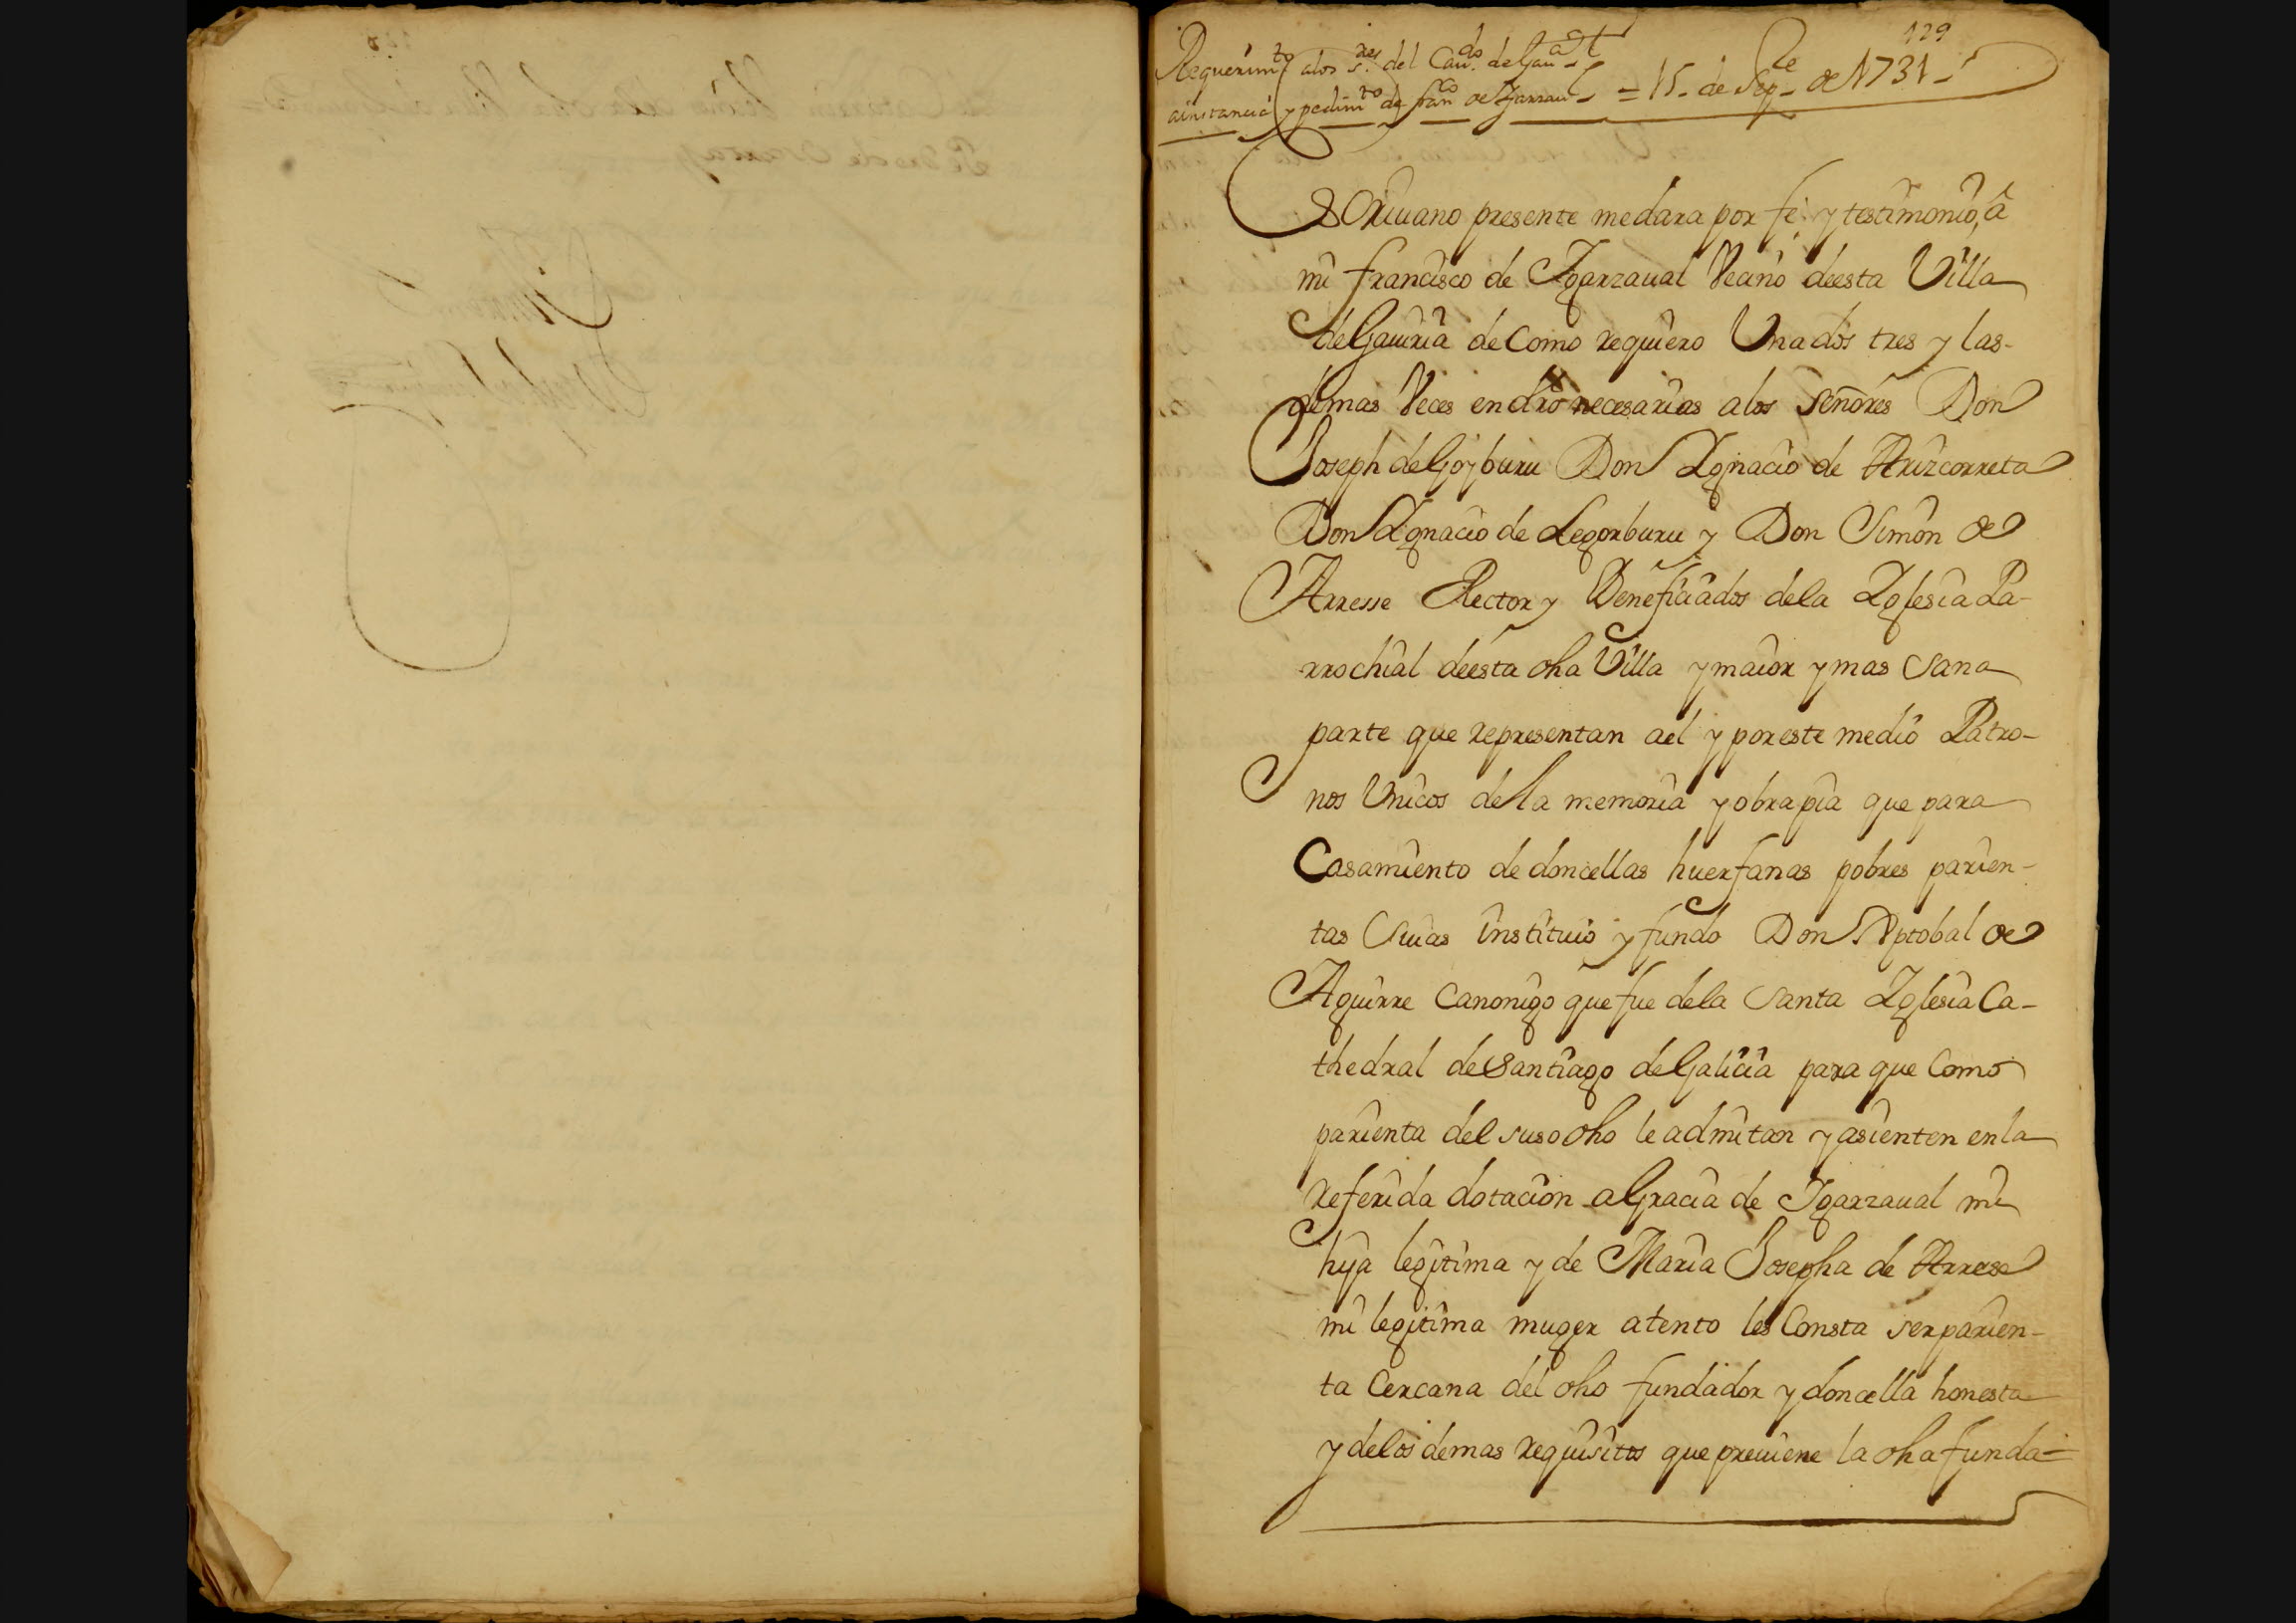 129
Requerimto alos sres del Caudo de Gaua
ainstancia y pedimto de franco de Ygarzaual = 15 de Sepre de 1731
Escriuano presente medara por fe y testimonio, â
mi francisco de Ygarzaual Vecino deesta Villa
de Gauiria de Como requiero Una dos tres y las
demas Veces en dro necesarias a los señores Don
Joseph de Goyburu Don Ygnacio de Arizcorreta
Don Ygnacio de Legorburu y Don Simon de
Arresse Rector y Beneficiados dela Yglesia Pa-
rrochial deesta dha Villa y maior y mas sana
parte que representan ael y por este medio Patro-
nos Unicos de la memoria y obra pia que para
Casamiento de doncellas huerfanas pobres parien-
tas suias instituio y fundo Don Xptobal de
Aguirre Canonigo que fue dela santa Yglesia Ca-
thedral de santiago de Galicia para que Como
parienta del suso dho le admitan y asienten en la
referida dotacion a Gracia de Ygarzaual mi
hija legitima y de Maria Josepha de Arrese
mi legitima muger atento les Consta ser parien-
ta Cercana del dho fundador y doncella honesta
y delos demas requisitos que preuiene la dha funda=